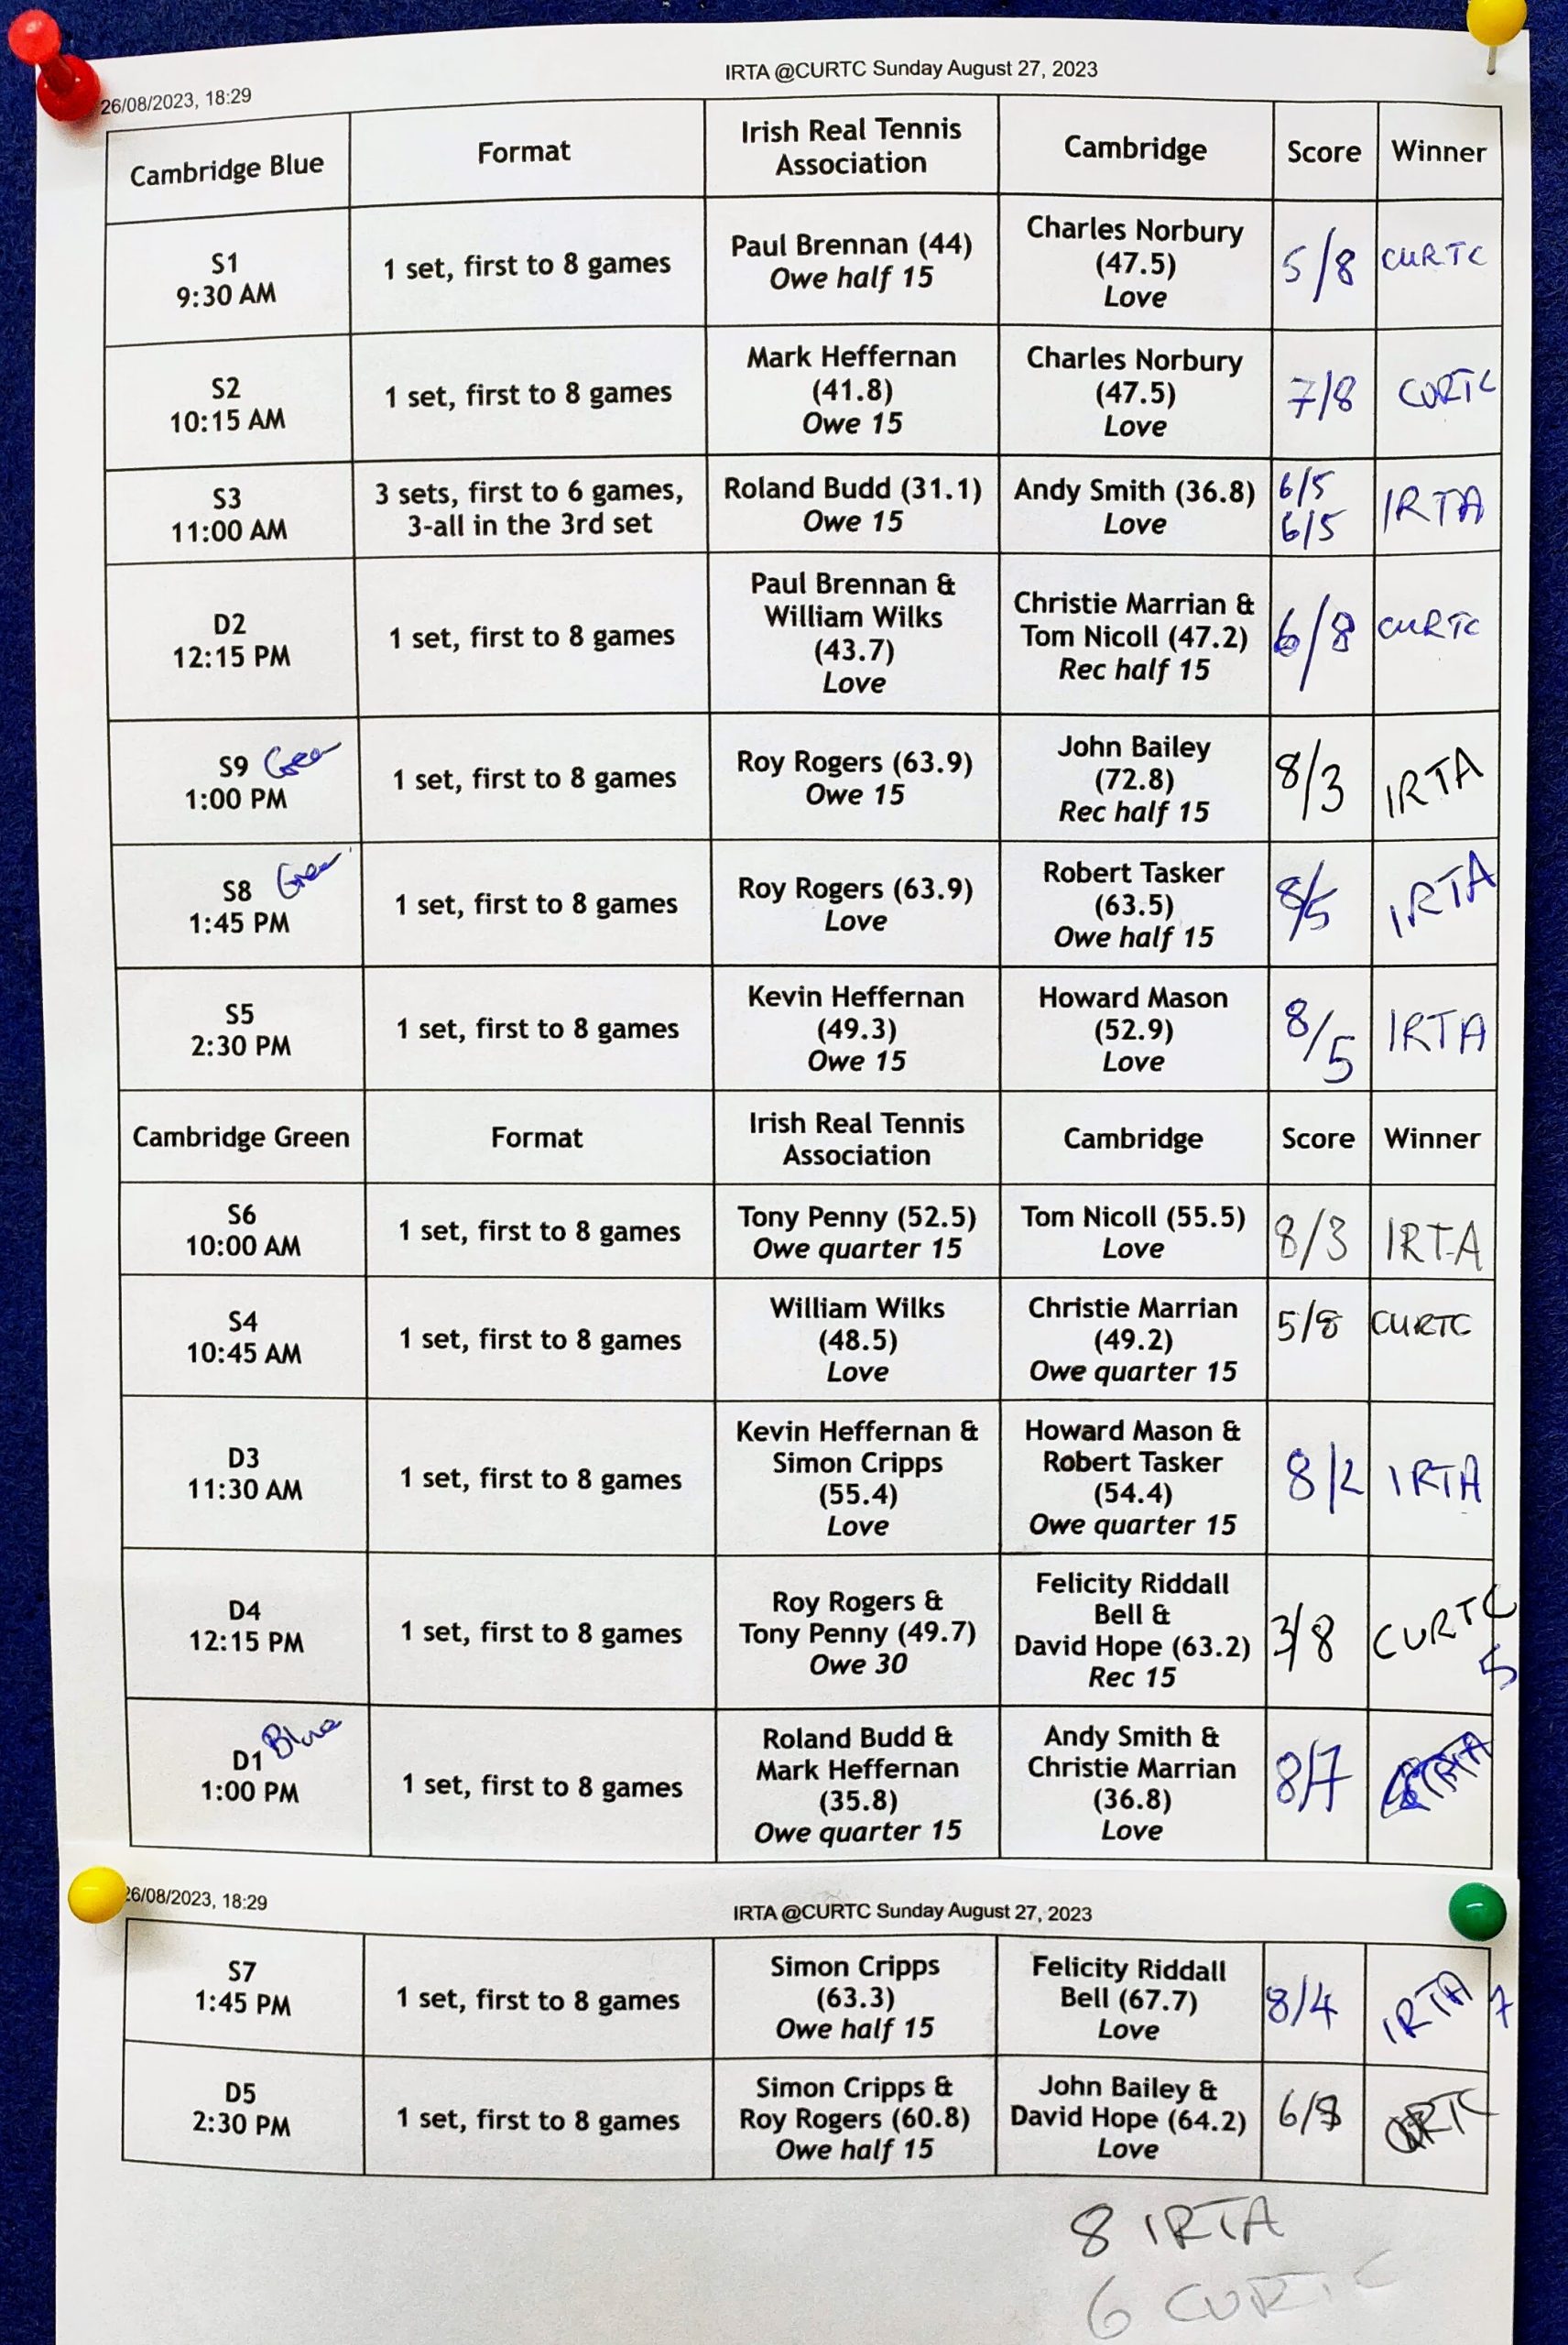 IRTA @CURTC Sunday August 27, 2023
26/08/2023, 18:29
Cambridge Blue
Format
Irish Real Tennis
Association
Cambridge
Score
Winner
S1
9:30 AM
1 set, first to 8 games
Paul Brennan (44)
Owe half 15
Charles Norbury
(47.5)
Love
5/8
CURTC
S2
10:15 AM
1 set, first to 8 games
Mark Heffernan
(41.8)
Owe 15
Charles Norbury
(47.5)
Love
7/8
CURTC
S3
11:00 AM
3 sets, first to 6 games,
3-all in the 3rd set
Roland Budd (31.1)
Owe 15
Andy Smith (36.8)
Love
6/5
6/5
IRTA
D2
12:15 PM
1 set, first to 8 games
Paul Brennan &
William Wilks
(43.7)
Love
Christie Marrian &
Tom Nicoll (47.2)
Rec half 15
6/8
CURTC
S9 Green
1:00 PM
1 set, first to 8 games
Roy Rogers (63.9)
Owe 15
John Bailey
(72.8)
Rec half 15
8/3
IRTA
S8 Green
1:45 PM
1 set, first to 8 games
Roy Rogers (63.9)
Love
Robert Tasker
(63.5)
Owe half 15
8/5
IRTA
S5
2:30 PM
1 set, first to 8 games
Kevin Heffernan
(49.3)
Owe 15
Howard Mason
(52.9)
Love
8/5
IRTA
Cambridge Green
Format
Irish Real Tennis
Association
Cambridge
Score
Winner
S6
10:00 AM
1 set, first to 8 games
Tony Penny (52.5)
Owe quarter 15
Tom Nicoll (55.5)
Love
8/3
IRTA
S4
10:45 AM
1 set, first to 8 games
William Wilks
(48.5)
Love
Christie Marrian
(49.2)
Owe quarter 15
5/8
CURTC
D3
11:30 AM
1 set, first to 8 games
Kevin Heffernan &
Simon Cripps
(55.4)
Love
Howard Mason &
Robert Tasker
(54.4)
Owe quarter 15
8/2
IRTA
D4
12:15 PM
1 set, first to 8 games
Roy Rogers &
Tony Penny (49.7)
Owe 30
Felicity Riddall
Bell &
David Hope (63.2)
Rec 15
3/8
CURTC
5
D1 Blue
1:00 PM
1 set, first to 8 games
Roland Budd &
Mark Heffernan
(35.8)
Owe quarter 15
Andy Smith &
Christie Marrian
(36.8)
Love
8/7
IRTA
26/08/2023, 18:29
IRTA @CURTC Sunday August 27, 2023
S7
1:45 PM
1 set, first to 8 games
Simon Cripps
(63.3)
Owe half 15
Felicity Riddall
Bell (67.7)
Love
8/4
IRTA
7
D5
2:30 PM
1 set, first to 8 games
Simon Cripps &
Roy Rogers (60.8)
Owe half 15
John Bailey &
David Hope (64.2)
Love
6/8
CURTC
8 IRTA
6 CURTC